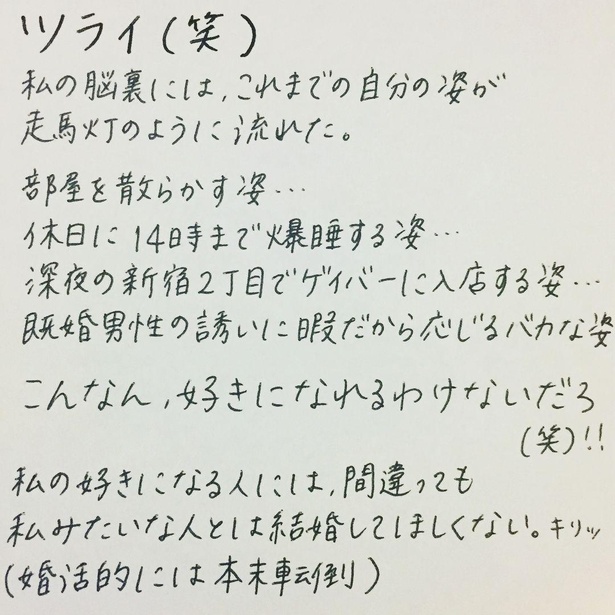 ツライ(笑)
私の脳裏には、これまでの自分の姿が
走馬灯のように流れた。
部屋を散らかす姿…
休日に14時まで爆睡する姿…
深夜の新宿2丁目でゲイバーに入店する姿…
既婚男性の誘いに暇だから応じるバカな姿
こんなん、好きになれるわけないだろ
(笑)!!
私の好きになる人には、間違っても
私みたいな人とは結婚してほしくない。キリッ
(婚活的には本末転倒)